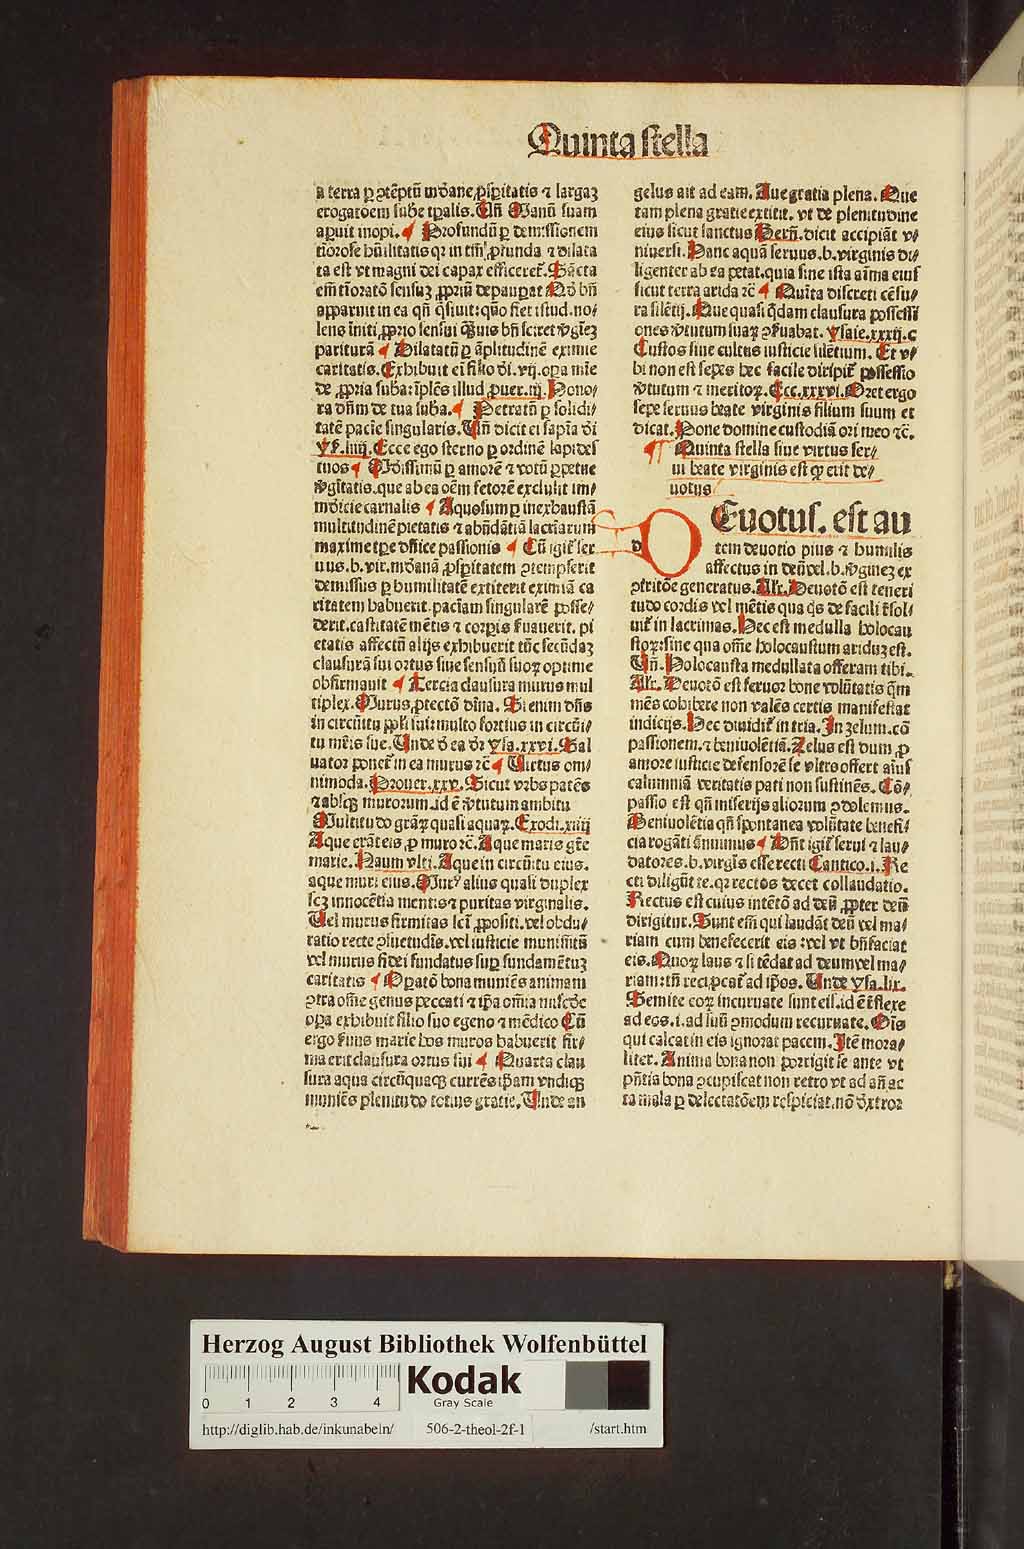 Quinta stella
a terra ꝑ ꝯtẽptũ mũdane ꝓsperitatis ⁊ largaꝫ
erogatõem sube tꝑalis. Uñ Manũ suam
aꝑuit inopi. Profundũ ꝑ demissionem
humilitatis qꝛ in ꝓfunda ⁊ dilata
ta est vt magni dei capax efficeret᷑. Sãcta
em̃ sensuꝫ ꝓpriũ depauꝑat
apparuit in ea qñ q̃siuit: quõ fiet istud. no/
lens ꝓprio sensui bñ sciret v̾gineꝫ
parituram Dilatatũ ꝑ ãplitudinẽ eximie
caritatis. Exhibuit ei filio dei. vij. oꝑa mie
de ꝓpria suba: implẽs illud ꝓuer. iij. Hono/
ra dñm de tua suba. Petratũ ꝑ solidi/
tatẽ pacie singularis. Uñ dicit ei sapia dei
Ys. liiij. Ecce ego sterno ꝑ ordinẽ lapides
tuos ꝑ amorẽ ⁊ votũ ꝑpetue
v̾gitatis. que ab ea oẽm fetorẽ exclusit im/
mũdicie carnalis Aquosum ꝑ inexhaustã
multitudinẽ pietatis ⁊ abũdãtiã lacrimarum
maxime tꝑe dñice passionis Cũ igit᷑ ser
uus. b. vir. mũdanã ꝓsperitatem ꝯtempserit
demissus ꝑ humilitatẽ extiterit eximiã ca
ritatem habuerit. paciam singularẽ posse/
derit. castitatẽ mẽtis ⁊ corpis seruauerit. pi
etatis affectũ alijs exhibuerit tũc secũdaꝫ
clausurã sui ortus siue sensuũ suoꝝ optime
obfirmauit Tercia clausura murus mul
tiplex. Murus ꝓtectõ diuina. Si enim dñs
in circũitu ppli sui: multo fortius in circũi/
tu mr̃is sue. Unde de ea dꝛ ysa. xxvi. Sal
uator ponet᷑ in ea murus ꝛc̃ Uirtus om/
nimoda. Prouer. xxv. Sicut vrbs patẽs
⁊ absqꝫ muroꝛum. id ẽ v̾tutum ambitu
Multitudo grãꝝ quasi aquaꝝ. Exodi. xiiij
Aque erãt eis ꝓ muro ꝛc̃. Aque maris grẽ
marie. Naum vlti. Aque in circũitu eius.
aque muri eius. Mur᷒ alius quasi duplex
scꝫ innocẽtia mentis ⁊ puritas virginalis.
Uel murus firmitas scĩ ꝓpositi. vel obdu/
ratio recte ꝯsuetudis. vel iusticie munimẽtũ
vel murus fidei fundatus suꝑ fundamẽtuꝫ
caritatis Oꝑatõ bona muniẽs animam
ꝯtra om̃e genus peccati ⁊ ip̃a om̃ia
oꝑa exhibuit filio suo egeno ⁊ mẽdico Cũ
ergo s̾uus marie hos muros habuerit fir/
ma erit clausura ortus sui Quarta clau
sura aqua circũquaqꝫ currẽs ip̃am vndiqꝫ
muniẽs plenitudo totius gratie. Unde an
gelus ait ad eam. Aue gratia plena. Que
tam plena gratie extitit. vt de plenitudine
eius sicut sanctus Bern̄. dicit accipiãt vn/
niuersi. Hanc aquã seruus. b. virginis di/
ligenter ab ea petat. quia sine ista aĩma eius
sicut terra arida ꝛc̃ Quita discreti cẽsu/
ra silẽtij. Que quasi q̃dam clausura possessi
ones v̾tutum suaꝝ ꝯs̾uabat. ysaie. xxxij. c
Custos siue cultus iusticie silẽtium. Et v/
bi non est sepes hec facile diripit᷑ possessio
v̾tutum ⁊ meritoꝝ. Ecc. xxxvi. Oret ergo
sepe seruus beate virginis filium suum et
dicat. Pone domine custodiã ori meo ꝛc̃.
Quinta stella siue virtus ser/
ui beate virginis est ꝙ erit de/
uotus
d
Euotus. est au
tem deuotio pius ⁊ humilis
affectus in deũ vel. b. v̾gineꝫ ex
ꝯtritõe generatus. Alr̃. Deuotõ est teneri
tudo cordis vel mẽtis qua q̃s de facili resol/
uit᷑ in lacrimas. Hec est medulla holocau
stoꝝ: sine qua om̃e holocaustum ariduꝫ est.
Uñ. Holocausta medullata offeram tibi.
Alr̃. Deuotõ est feruor bone volũtatis q̃m
mẽs cohibere non valẽs certis manifestat
indicijs. Hec diuidit᷑ in tria. In zelum. cõ
passionem. ⁊ beniuolẽtiã. Zelus est dum ꝓ
amore iusticie defensorẽ se vltro offert
calumniã veritatis pati non sustinẽs. Cõ/
passio est qñ miserijs alioꝛum ꝯdolemus.
Beniuolẽtia qñ spontanea volũtate benefi/
cia rogãti Dñt igit᷑ serui ⁊ lau/
datores. b. virgis esse recti Cantico. i. Re
cti diligũt te. qꝛ rectos decet collaudatio.
Rectus est cuius intẽtõ ad deũ ꝓpter deũ
dirigitur. Sunt em̃ qui laudãt deũ vel ma/
riam cum benefecerit eis: vel vt bñfaciat
eis. Quoꝝ laus ⁊ si tẽdat ad deum vel ma/
riam: tñ reciꝓcat᷑ ad ip̃os. Unde ysa. lix.
Semite eoꝝ incuruate sunt eis. id ẽ reflexe
ad eos. i. ad suũ ꝯmodum recuruate. Om̃is
qui calcat in eis ignorat pacem. Itẽ mora/
liter. Anima bona non porrigit se ante vt
pñtia bona ꝯcupiscat non retro vt ad añ ac
ta mala ꝑ delectatõem respiciat. nõ dextror
Herzog August Bibliothek Wolfenbüttel
0 1 2 3 4
Kodak
Gray Scale
http://diglib.hab.de/inkunabeln/ 506-2-theol-2f-1 /start.htm